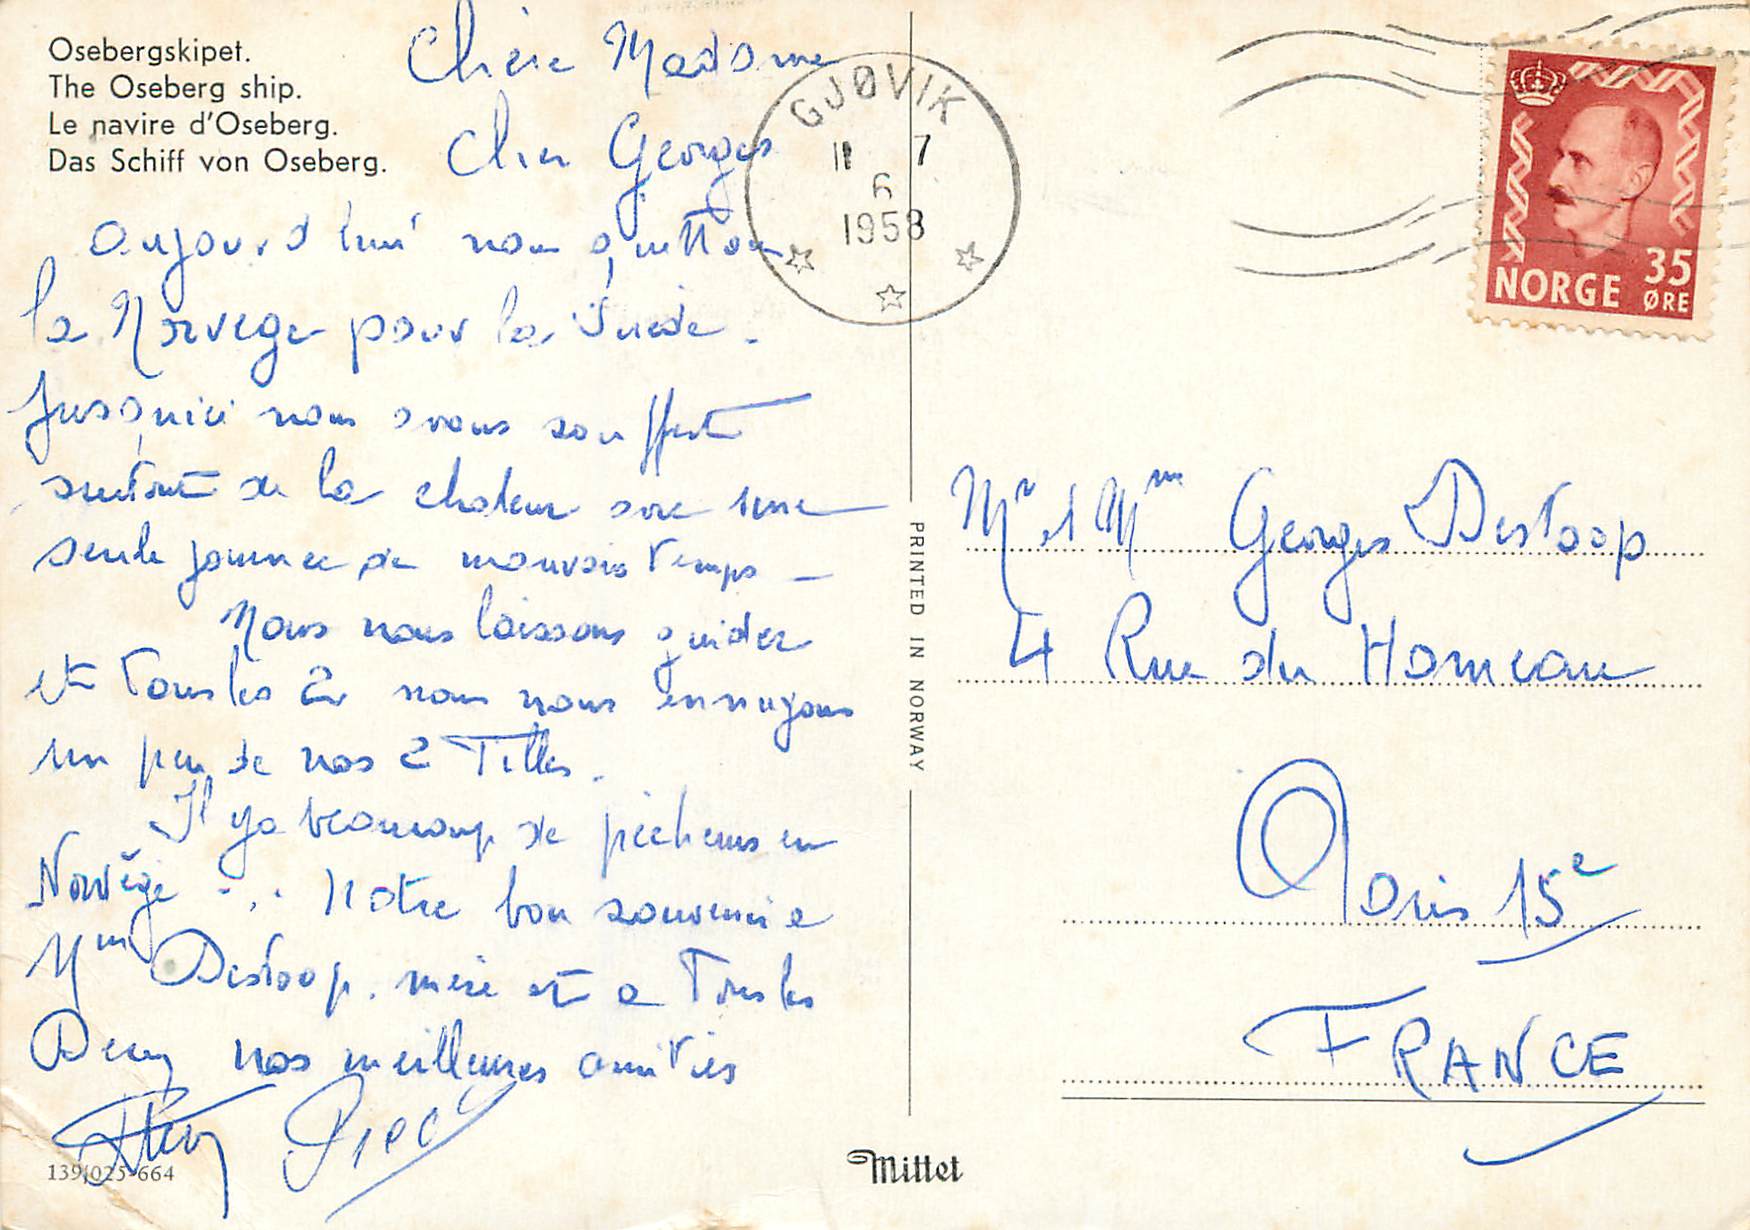 Osebergskipet.
The Oseberg ship.
Le navire d'Oseberg.
Das Schiff von Oseberg.
Chère Madame
Cher Georges
aujourd'hui nous quittons
la Norvège pour la Suède.
Jusqu'ici nous avons souffert
surtout de la chaleur avec une
seule journée de mauvais temps —
Nous nous laissons guider
et tous les 2 nous nous ennuyons
un peu de nos 2 Filles.
Il y a beaucoup de pêcheurs en
Norvège ... Notre bon souvenir a
Mme Destoop. mère et a Tous les
Deux nos meilleures amitiés
139/025-664
GJØVIK
11 7
6
1958
NORGE 35
ØRE
PRINTED IN NORWAY
Mr et Mme Georges Destoop
4 Rue du Hameau
Paris 15e
FRANCE
Mittet